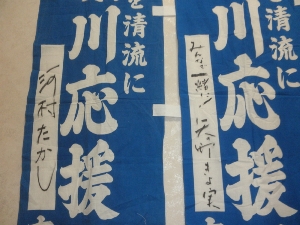 を清流に
川応援
みんなで一緒に!
を清流に
川応援
河村たかし